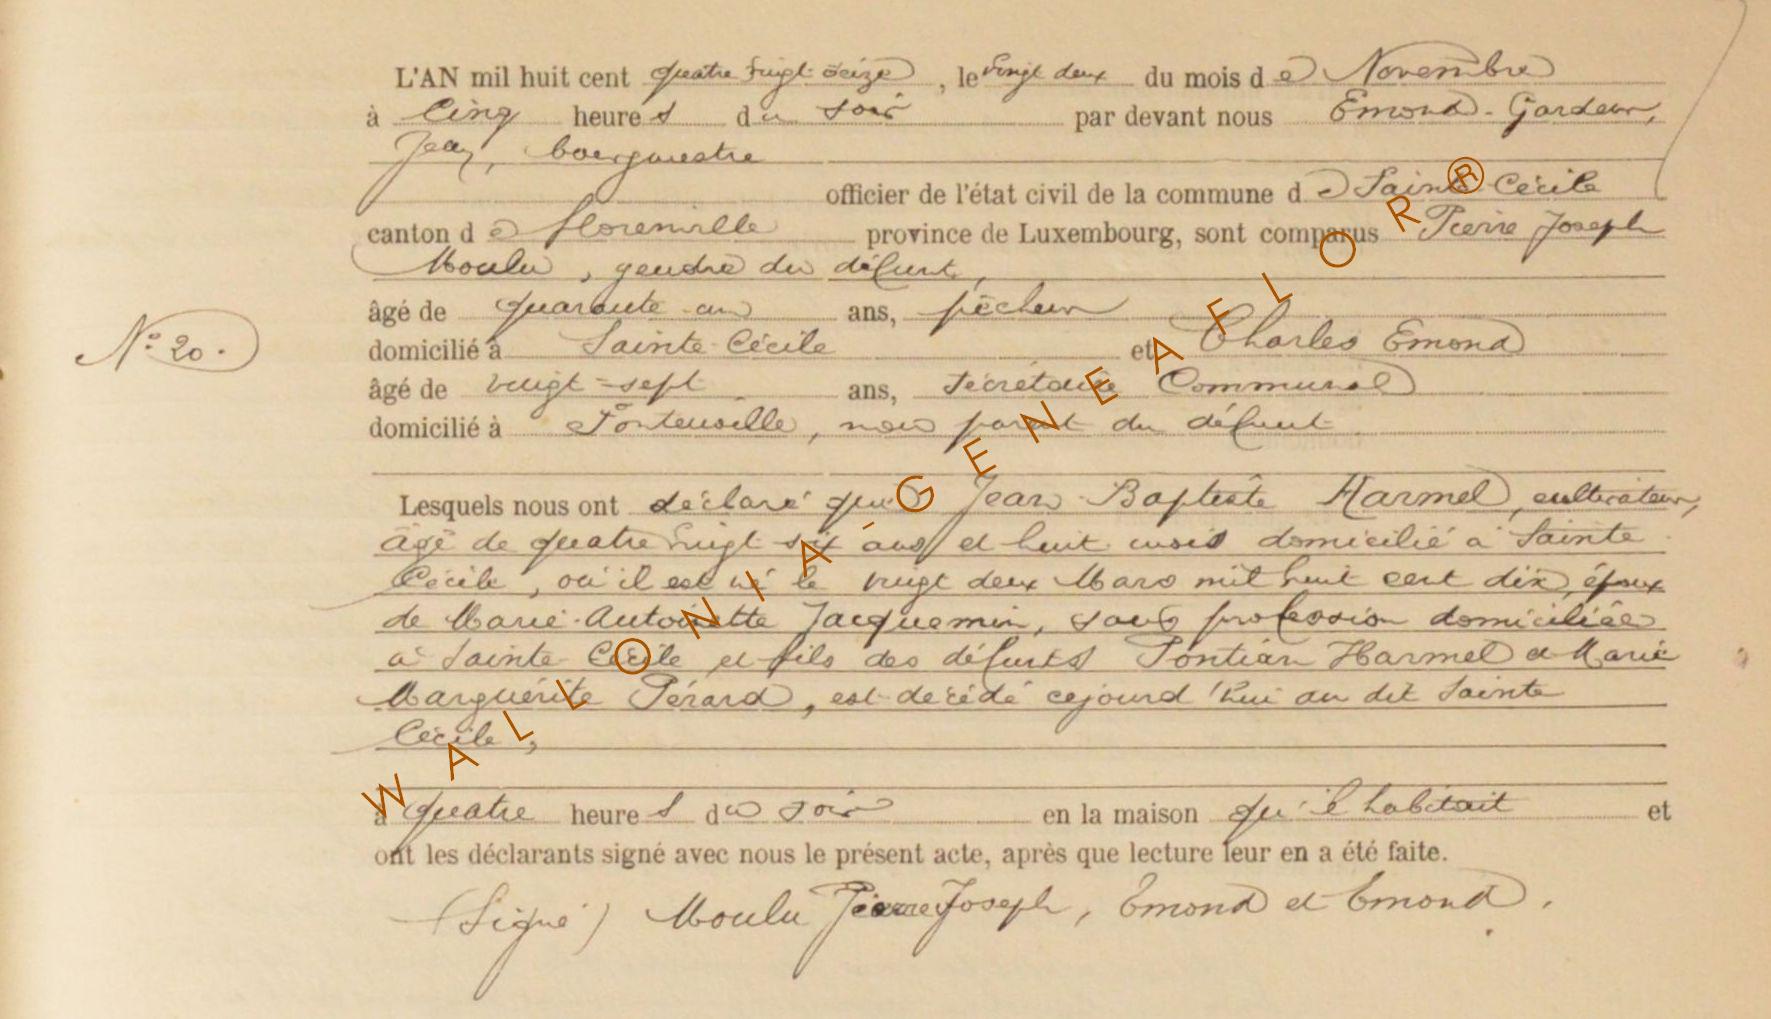 L'AN mil huit cent quatre vingt seize, le vingt deux du mois de Novembre
à Cinq heures du soir par devant nous Emond-Gardeur,
Jean, bourgmestre
officier de l'état civil de la commune de Sainte Cécile
canton de Florenville province de Luxembourg, sont comparus Pierre Joseph
Moulu, gendre du défunt,
âgé de quarante un ans, pêcheur
N° 20.
domicilié à Sainte Cécile et Charles Emond
âgé de vingt-sept ans, secrétaire Communal
domicilié à Fontenoille, non parent du défunt
Lesquels nous ont déclaré que Jean Baptiste Harmel, cultivateur,
âgé de quatre vingt six ans et huit mois domicilié à Sainte
Cécile, où il est né le vingt deux Mars mil huit cent dix, époux
de Marie Antoinette Jacquemin, sans profession domiciliée
à Sainte Cécile et fils des défunts Pontian Harmel et Marie
Marguérite Pérard, est décédé cejourd'hui au dit Sainte
Cécile,
à quatre heures du soir en la maison qu'il habitait et
ont les déclarants signé avec nous le présent acte, après que lecture leur en a été faite.
(Signé) Moulu Pierre Joseph, Emond et Emond.
WALLONIA-GENEAFLOR®